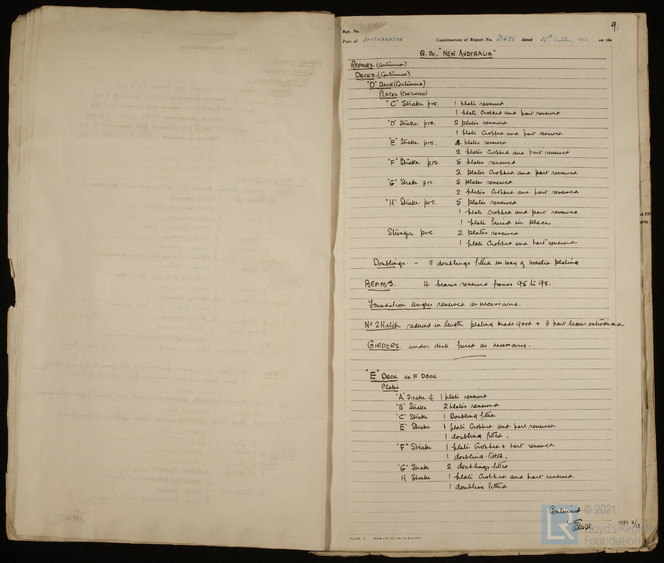 9.
Rpt. No.
Port of SOUTHAMPTON Continuation of Report No. dated on the
Q. Sc. "NEW AUSTRALIA"
REPAIRS. (Continued)
DECKS. (Continued)
"D" Deck (Continued)
PLATES (CONTINUED)
"C" Strake prs. 1 plate renewed
1 plate cropped and part renewed
"D" Strake prs. 2 plates renewed
1 plate cropped and part renewed
"E" Strake prs. 4 plates renewed
2 plates cropped and part renewed
"F" Strake prs. 5 plates renewed
2 plates cropped and part renewed
"G" Strake prs. 5 plates renewed
2 plates cropped and part renewed
"H" Strake prs. 5 plates renewed
1 plate cropped and part renewed
1 plate faired in place.
Stringer prs 2 plates renewed
1 plate cropped and part renewed
Doublings. - 11 doublings fitted in way of wasted plating
BEAMS. 4 beams renewed frames 95 to 98.
Foundation angles renewed as necessary.
No 2 Hatch reduced in length plating made good & 3 part beams
GIRDERS. under deck faired as necessary.
"E" DECK ex F DECK
Plates
"A" Strake 1 plate renewed
"B" Strake 2 plates renewed
"C" Strake 1 Doubling fitted
E" Strake 1 plate cropped and part renewed
1 doubling fitted.
"F" Strake 1 plate cropped & part renewed
1 doubling fitted.
"G" Strake 2 doublings fitted
H Strake 1 plate cropped and part renewed
1 doubling fitted
Continued
© 2021
LR Lloyd's Register
Foundation